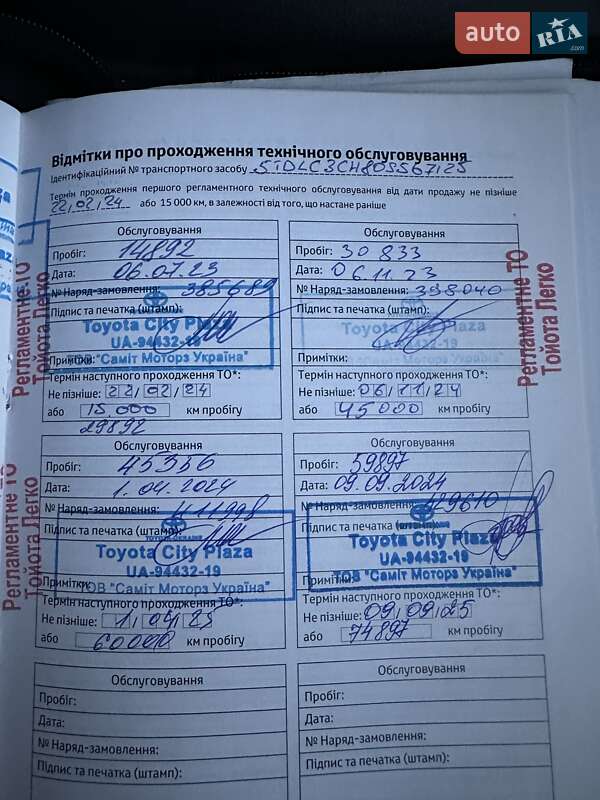 auto RIA .com
Відмітки про проходження технічного обслуговування
Ідентифікаційний № транспортного засобу 5TDLC3CH80S567125
Термін проходження першого регламентного технічного обслуговування від дати продажу не пізніше
22/02/24 або 15 000 км, в залежності від того, що настане раніше
Регламентне ТО
Тойота Легко
Обслуговування
Пробіг: 14892
Дата: 06.07.23
№ Наряд-замовлення: 385689
Підпис та печатка (штамп):
Toyota City Plaza
UA-94432-19
Примітки:
ТОВ "Саміт Моторз Україна"
Термін наступного проходження ТО*:
Не пізніше: 22/02/24
або 15.000 км пробігу
29892
Обслуговування
Пробіг: 30 833
Дата: 06.11.23
№ Наряд-замовлення: 398040
Підпис та печатка (штамп):
Toyota City Plaza
UA-94432-19
Примітки:
"Саміт Моторз Україна"
Термін наступного проходження ТО*:
Не пізніше: 06/11/24
або 45000 км пробігу
Регламентне ТО
Тойота Легко
Регламентне ТО
Тойота Легко
Обслуговування
Пробіг: 45356
Дата: 1.04.2024
№ Наряд-замовлення: 411998
Підпис та печатка (штамп):
Toyota City Plaza
UA-94432-19
Примітки:
ТОВ "Саміт Моторз Україна"
Термін наступного проходження ТО*:
Не пізніше: 1/04/25
або 60000 км пробігу
Обслуговування
Пробіг: 59897
Дата: 09.09.2024
№ Наряд-замовлення: 429610
Підпис та печатка (штамп):
Toyota City Plaza
UA-94432-19
Примітки:
ТОВ "Саміт Моторз Україна"
Термін наступного проходження ТО*:
Не пізніше: 09/09/25
або 74897 км пробігу
Обслуговування
Пробіг:
Дата:
№ Наряд-замовлення:
Підпис та печатка (штамп):
Обслуговування
Пробіг:
Дата:
№ Наряд-замовлення:
Підпис та печатка (штамп):